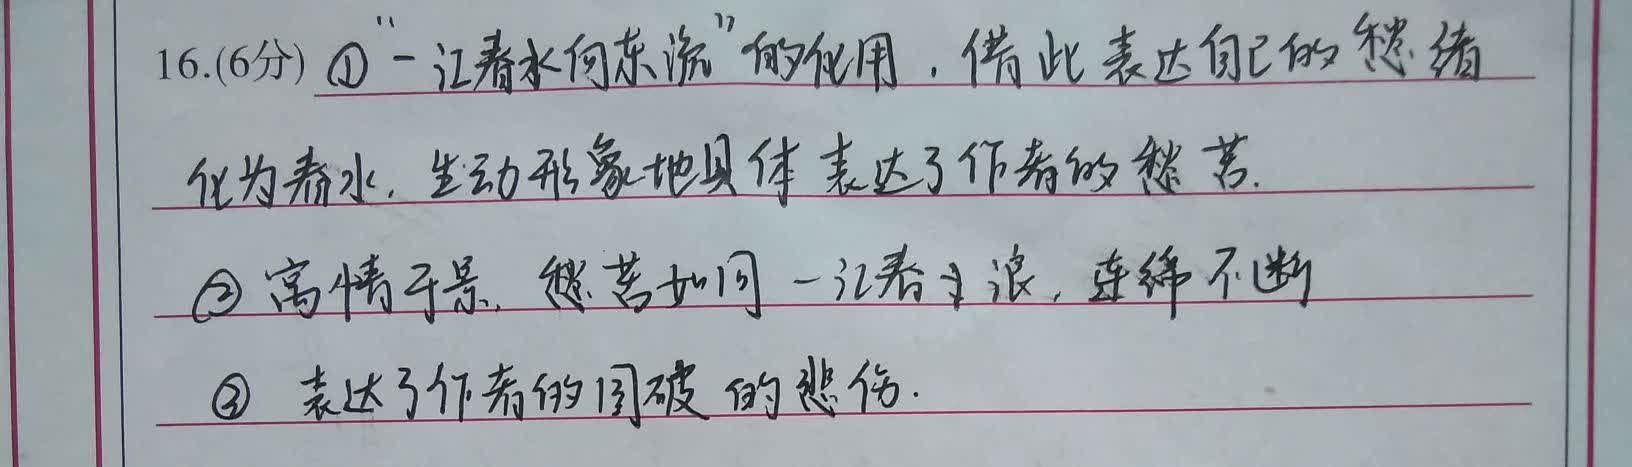 16.(6分) ①“一江春水向东流”的化用，借此表达自己的愁绪
化为春水，生动形象地具体表达了作者的愁苦.
②寓情于景，愁苦如同一江春水浪，连绵不断
③ 表达了作者的国破的悲伤.